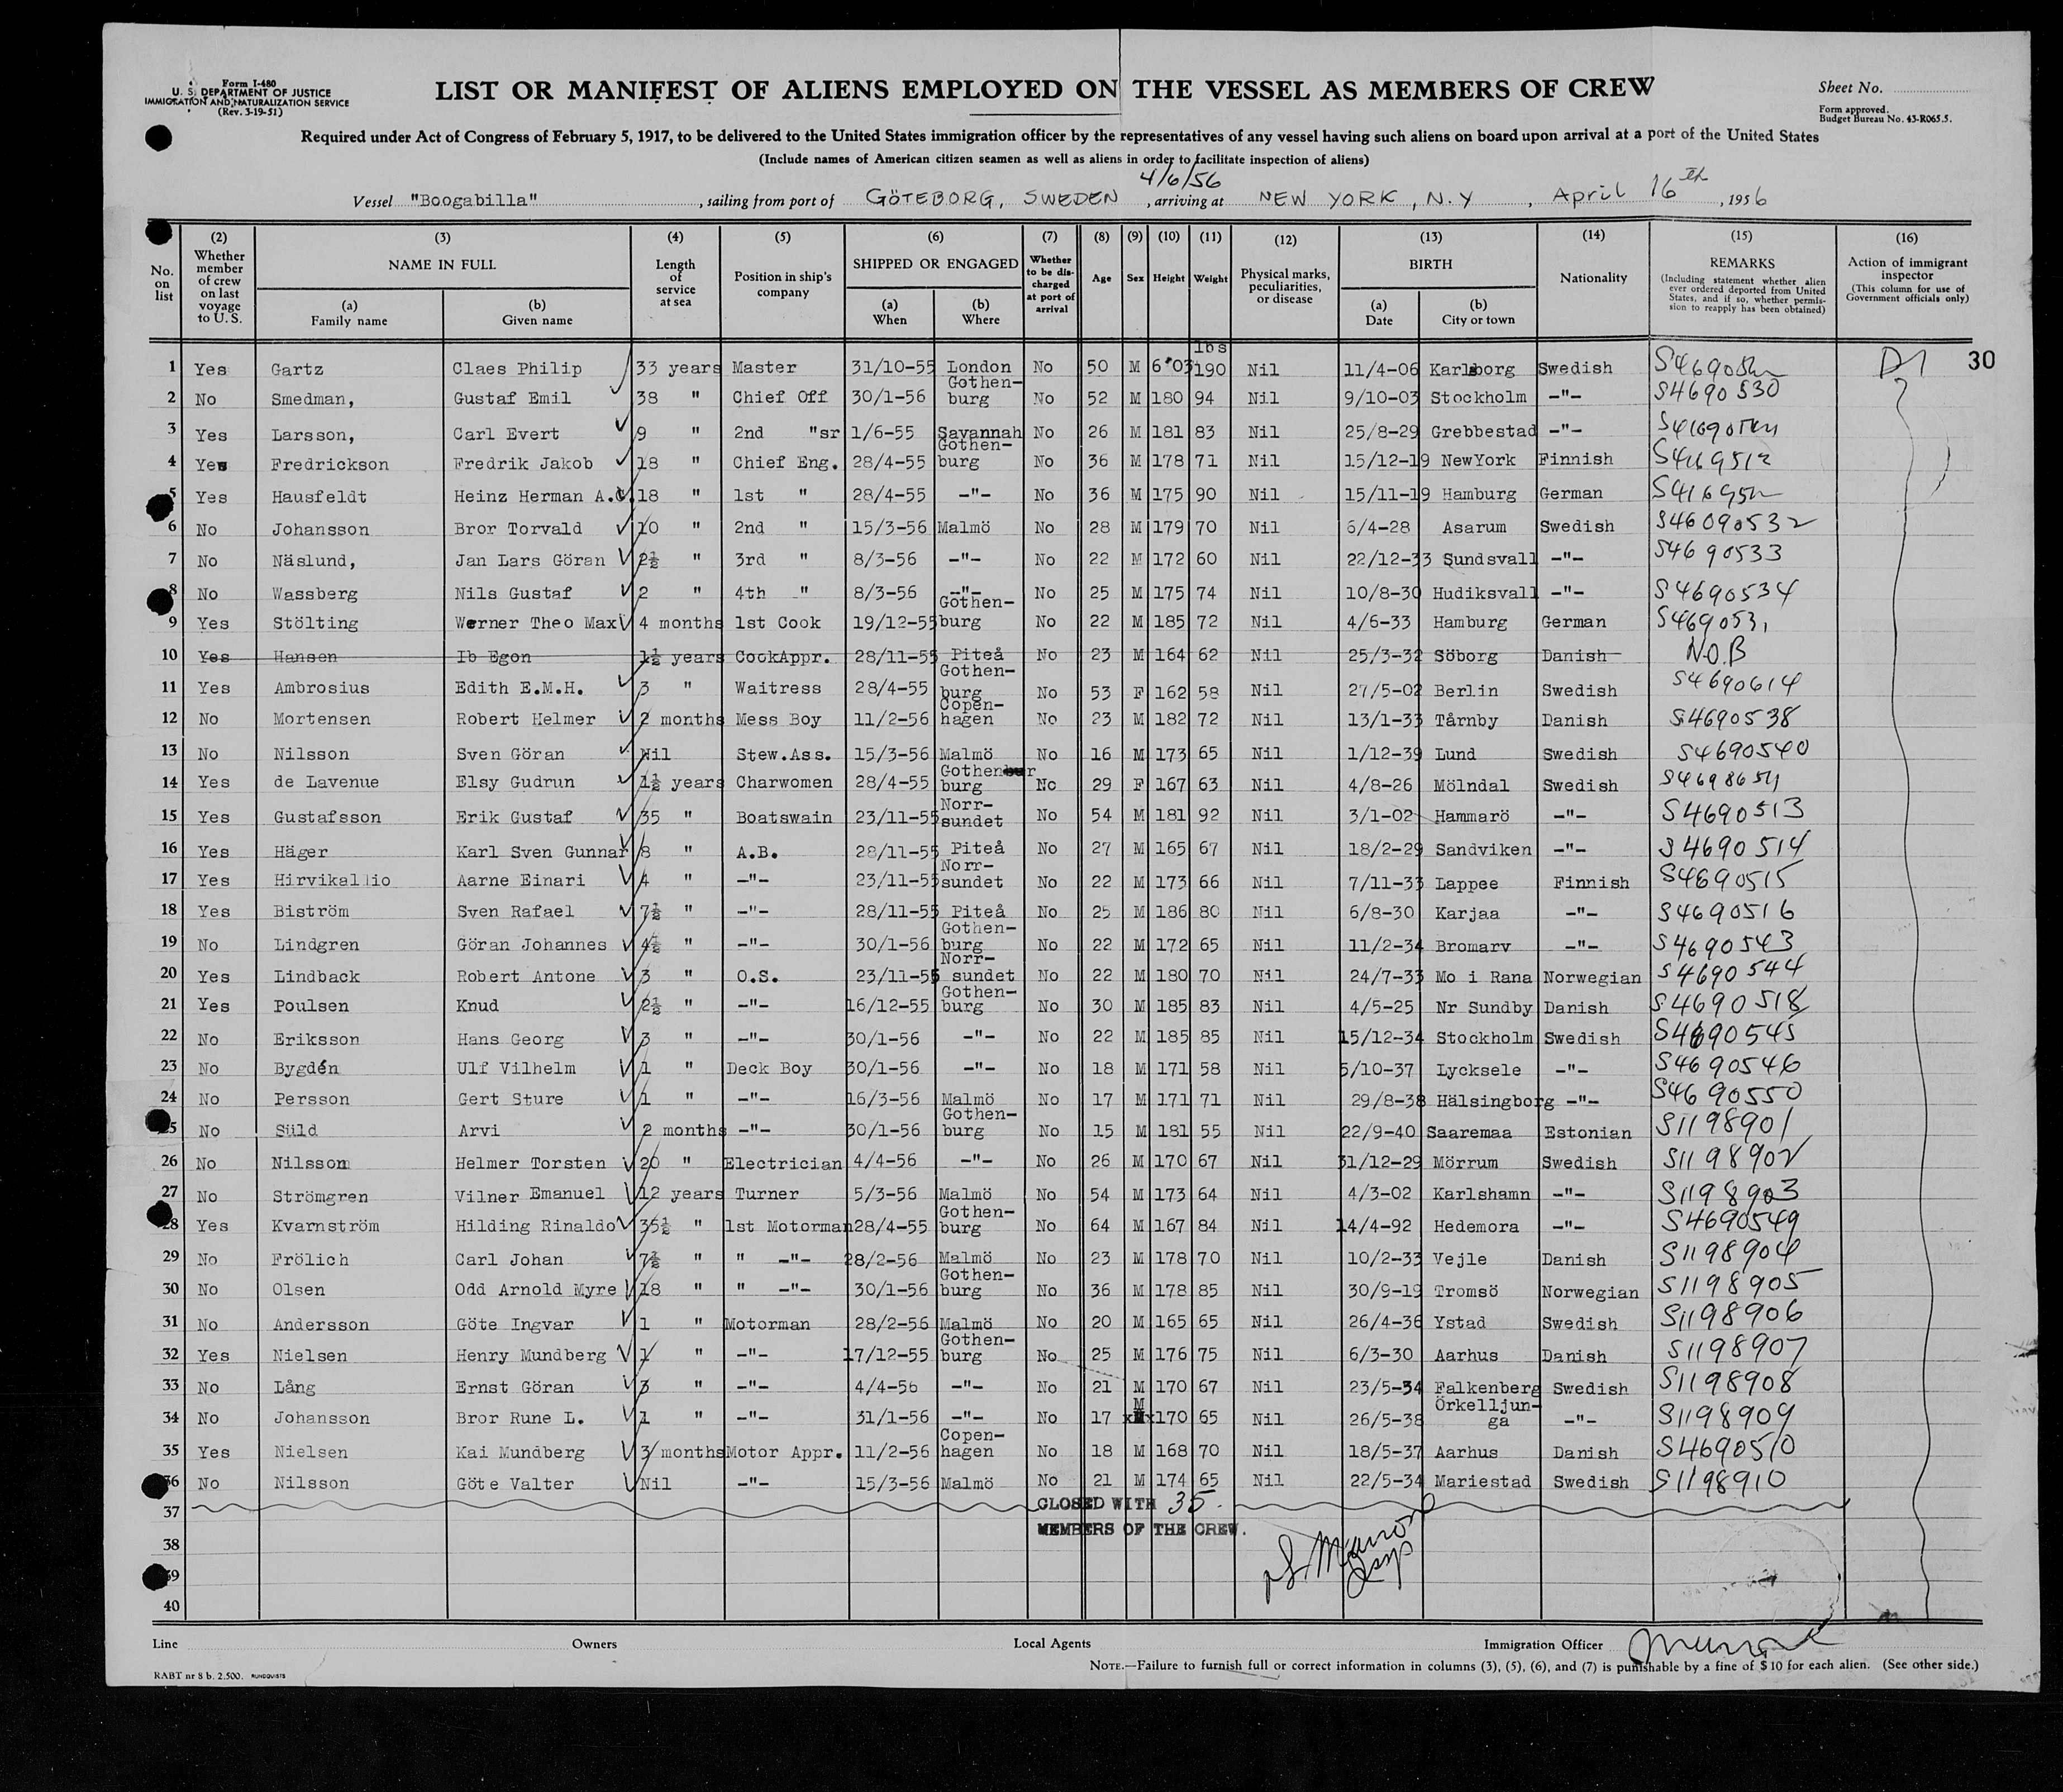 Form I-480
U. S. DEPARTMENT OF JUSTICE
IMMIGRATION AND NATURALIZATION SERVICE
(Rev. 3-19-51)
LIST OR MANIFEST OF ALIENS EMPLOYED ON THE VESSEL AS MEMBERS OF CREW
Sheet No.
Form approved.
Budget Bureau No. 43-R065.5.
Required under Act of Congress of February 5, 1917, to be delivered to the United States immigration officer by the representatives of any vessel having such aliens on board upon arrival at a port of the United States
(Include names of American citizen seamen as well as aliens in order to facilitate inspection of aliens)
4/6/56
Vessel "Boogabilla", sailing from port of GÖTEBORG, SWEDEN, arriving at NEW YORK, N.Y, April 16th, 1956
No. on list (2) Whether member of crew on last voyage to U. S. (3) NAME IN FULL (a) Family name (b) Given name (4) Length of service at sea (5) Position in ship's company (6) SHIPPED OR ENGAGED (a) When (b) Where (7) Whether to be discharged at port of arrival (8) Age (9) Sex (10) Height (11) Weight (12) Physical marks, peculiarities, or disease (13) BIRTH (a) Date (b) City or town (14) Nationality (15) REMARKS (Including statement whether alien ever ordered deported from United States, and if so, whether permission to reapply has been obtained) (16) Action of immigrant inspector (This column for use of Government officials only)
lbs
1 Yes Gartz Claes Philip 33 years Master 31/10-55 London No 50 M 6"03 190 Nil 11/4-06 Karlsborg Swedish D1 30
2 No Smedman, Gustaf Emil 38 " Chief Off 30/1-56 Gothen-burg No 52 M 180 94 Nil 9/10-03 Stockholm -"- S4690530
3 Yes Larsson, Carl Evert 9 " 2nd "sr 1/6-55 Savannah No 26 M 181 83 Nil 25/8-29 Grebbestad -"-
4 Yes Fredrickson Fredrik Jakob 18 " Chief Eng. 28/4-55 Gothen-burg No 36 M 178 71 Nil 15/12-19 NewYork Finnish
5 Yes Hausfeldt Heinz Herman A. 18 " 1st " 28/4-55 -"- No 36 M 175 90 Nil 15/11-19 Hamburg German
6 No Johansson Bror Torvald 10 " 2nd " 15/3-56 Malmö No 28 M 179 70 Nil 6/4-28 Asarum Swedish S46090532
7 No Näslund, Jan Lars Göran 2½ " 3rd " 8/3-56 -"- No 22 M 172 60 Nil 22/12-33 Sundsvall -"- S4690533
8 No Wassberg Nils Gustaf 2 " 4th " 8/3-56 -"- No 25 M 175 74 Nil 10/8-30 Hudiksvall -"- S4690534
9 Yes Stölting Werner Theo Max 4 months 1st Cook 19/12-55 Gothen-burg No 22 M 185 72 Nil 4/6-33 Hamburg German S4690531
10 Yes Hansen Ib Egon 1½ years CookAppr. 28/11-55 Piteå No 23 M 164 62 Nil 25/3-32 Söborg Danish N.O.B
11 Yes Ambrosius Edith E.M.H. 3 " Waitress 28/4-55 Gothen-burg No 53 F 162 58 Nil 27/5-02 Berlin Swedish S4690614
12 No Mortensen Robert Helmer 2 months Mess Boy 11/2-56 Copen-hagen No 23 M 182 72 Nil 13/1-33 Tårnby Danish S4690538
13 No Nilsson Sven Göran Nil Stew.Ass. 15/3-56 Malmö No 16 M 173 65 Nil 1/12-39 Lund Swedish S4690540
14 Yes de Lavenue Elsy Gudrun 1½ years Charwomen 28/4-55 Gothen-burg No 29 F 167 63 Nil 4/8-26 Mölndal Swedish
15 Yes Gustafsson Erik Gustaf 35 " Boatswain 23/11-55 Norr-sundet No 54 M 181 92 Nil 3/1-02 Hammarö -"- S4690513
16 Yes Häger Karl Sven Gunnar 8 " A.B. 28/11-55 Piteå No 27 M 165 67 Nil 18/2-29 Sandviken -"- S4690514
17 Yes Hirvikallio Aarne Einari 4 " -"- 23/11-55 Norr-sundet No 22 M 173 66 Nil 7/11-33 Lappee Finnish S4690515
18 Yes Biström Sven Rafael 7½ " -"- 28/11-55 Piteå No 25 M 186 80 Nil 6/8-30 Karjaa -"- S4690516
19 No Lindgren Göran Johannes 4½ " -"- 30/1-56 Gothen-burg No 22 M 172 65 Nil 11/2-34 Bromarv -"- S4690543
20 Yes Lindback Robert Antone 3 " O.S. 23/11-55 Norr-sundet No 22 M 180 70 Nil 24/7-33 Mo i Rana Norwegian S4690544
21 Yes Poulsen Knud 2½ " -"- 16/12-55 Gothen-burg No 30 M 185 83 Nil 4/5-25 Nr Sundby Danish S4690518
22 No Eriksson Hans Georg 3 " -"- 30/1-56 -"- No 22 M 185 85 Nil 15/12-34 Stockholm Swedish S4690545
23 No Bygdén Ulf Vilhelm 1 " Deck Boy 30/1-56 -"- No 18 M 171 58 Nil 5/10-37 Lycksele -"- S4690546
24 No Persson Gert Sture 1 " -"- 16/3-56 Malmö No 17 M 171 71 Nil 29/8-38 Hälsingborg -"- S4690550
25 No Süld Arvi 2 months -"- 30/1-56 Gothen-burg No 15 M 181 55 Nil 22/9-40 Saaremaa Estonian S1198901
26 No Nilsson Helmer Torsten 20 " Electrician 4/4-56 -"- No 26 M 170 67 Nil 31/12-29 Mörrum Swedish S1198902
27 No Strömgren Vilner Emanuel 12 years Turner 5/3-56 Malmö No 54 M 173 64 Nil 4/3-02 Karlshamn -"- S1198903
28 Yes Kvarnström Hilding Rinaldo 35½ " 1st Motorman 28/4-55 Gothen-burg No 64 M 167 84 Nil 14/4-92 Hedemora -"- S4690549
29 No Frölich Carl Johan 7½ " " -"- 28/2-56 Malmö No 23 M 178 70 Nil 10/2-33 Vejle Danish S1198904
30 No Olsen Odd Arnold Myre 18 " " -"- 30/1-56 Gothen-burg No 36 M 178 85 Nil 30/9-19 Tromsö Norwegian S1198905
31 No Andersson Göte Ingvar 1 " Motorman 28/2-56 Malmö No 20 M 165 65 Nil 26/4-36 Ystad Swedish S1198906
32 Yes Nielsen Henry Mundberg 1 " -"- 17/12-55 Gothen-burg No 25 M 176 75 Nil 6/3-30 Aarhus Danish S1198907
33 No Lång Ernst Göran 3 " -"- 4/4-56 -"- No 21 M 170 67 Nil 23/5-34 Falkenberg Swedish S1198908
34 No Johansson Bror Rune L. 1 " -"- 31/1-56 -"- No 17 M 170 65 Nil 26/5-38 Örkelljun-ga -"- S1198909
35 Yes Nielsen Kai Mundberg 3 months Motor Appr. 11/2-56 Copen-hagen No 18 M 168 70 Nil 18/5-37 Aarhus Danish S4690510
36 No Nilsson Göte Valter Nil -"- 15/3-56 Malmö No 21 M 174 65 Nil 22/5-34 Mariestad Swedish S1198910
37 CLOSED WITH 35.
MEMBERS OF THE CREW.
38
39
40
Line Owners Local Agents Immigration Officer
RABT nr 8 b. 2.500. RUNDQVISTS
NOTE.—Failure to furnish full or correct information in columns (3), (5), (6), and (7) is punishable by a fine of $10 for each alien. (See other side.)